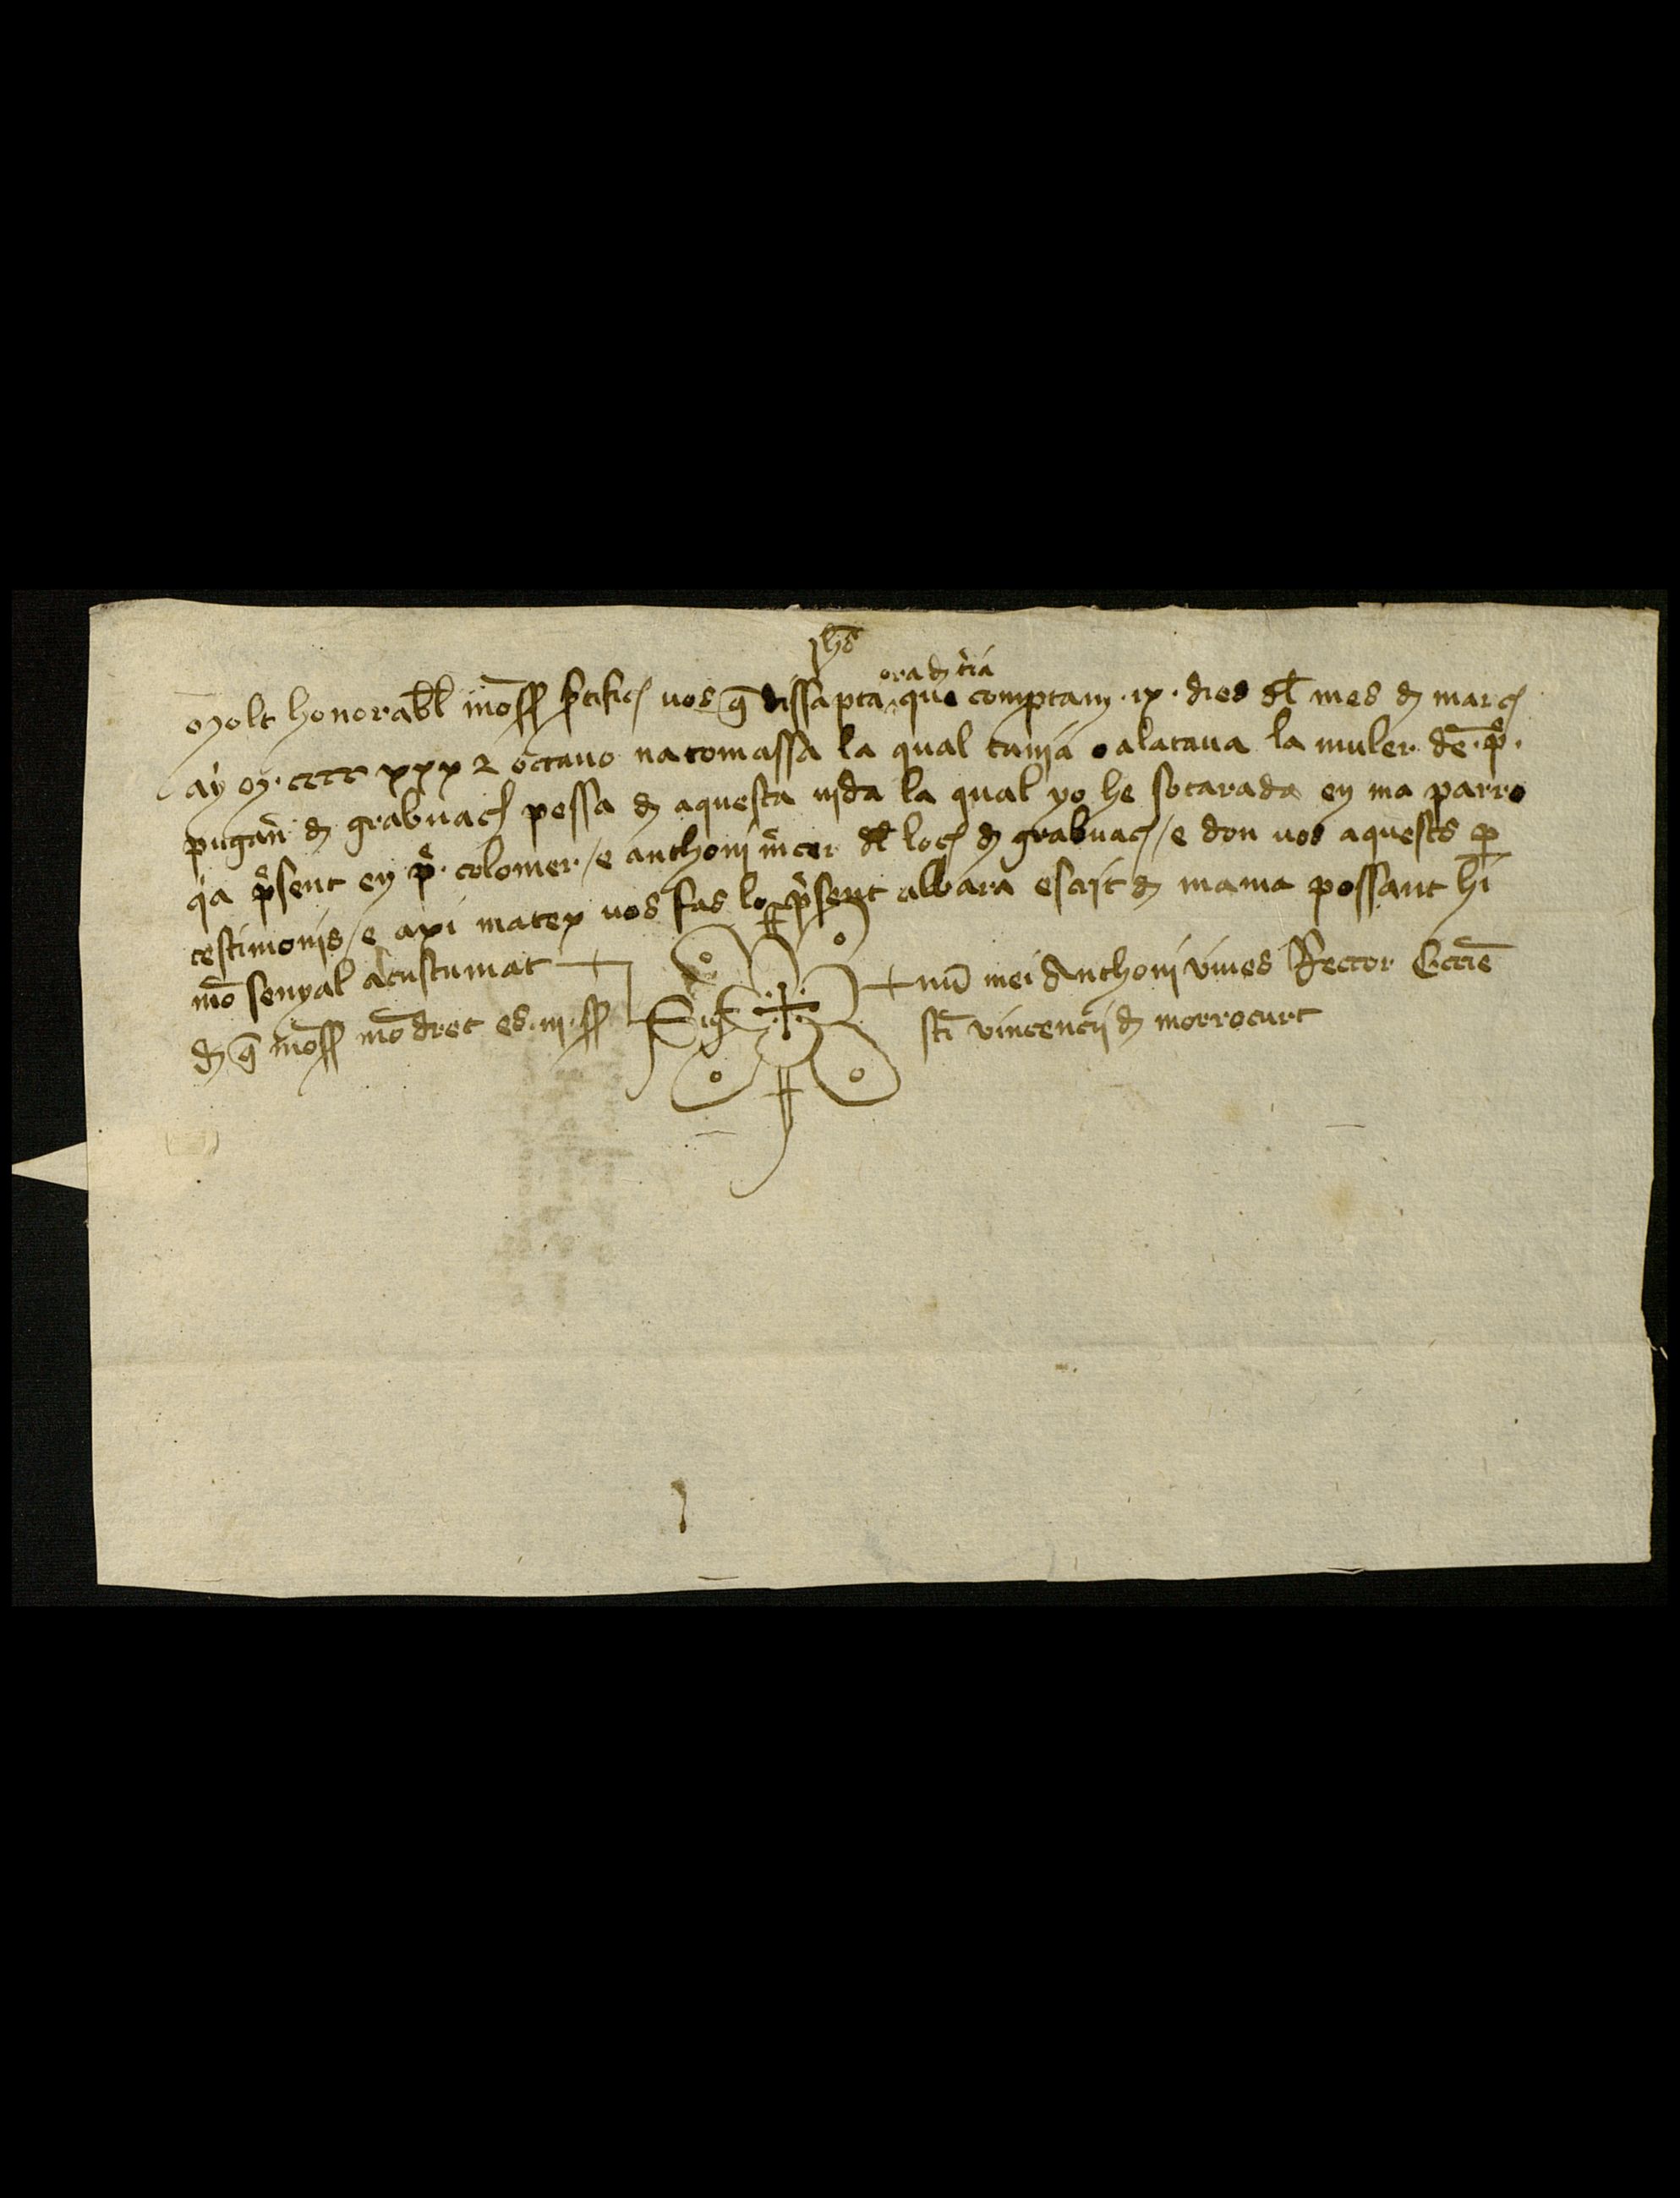 Jhs
ora d tcia
Molt honorabl moss certifich vos q dissapta que comptam .ix. dies del mes d març
any M cccc xxx 2 octauo na tomassa la qual tania e alatava la muler de .p.
pugan d grabuach passa d aquesta uida la qual yo he sotarada en ma parro
qia present en p. colomer / e anthoni mcer del loch d grabuach / e don uos aquests per
testimonis / e axi matex uos fas lo present albara escrit d mama possant hi
mo senyal acustumat
d q moss mo dret es .iii. ss
Sig+num mei Anthonii viues Rector Eccie
sti vincencii d morrocurt